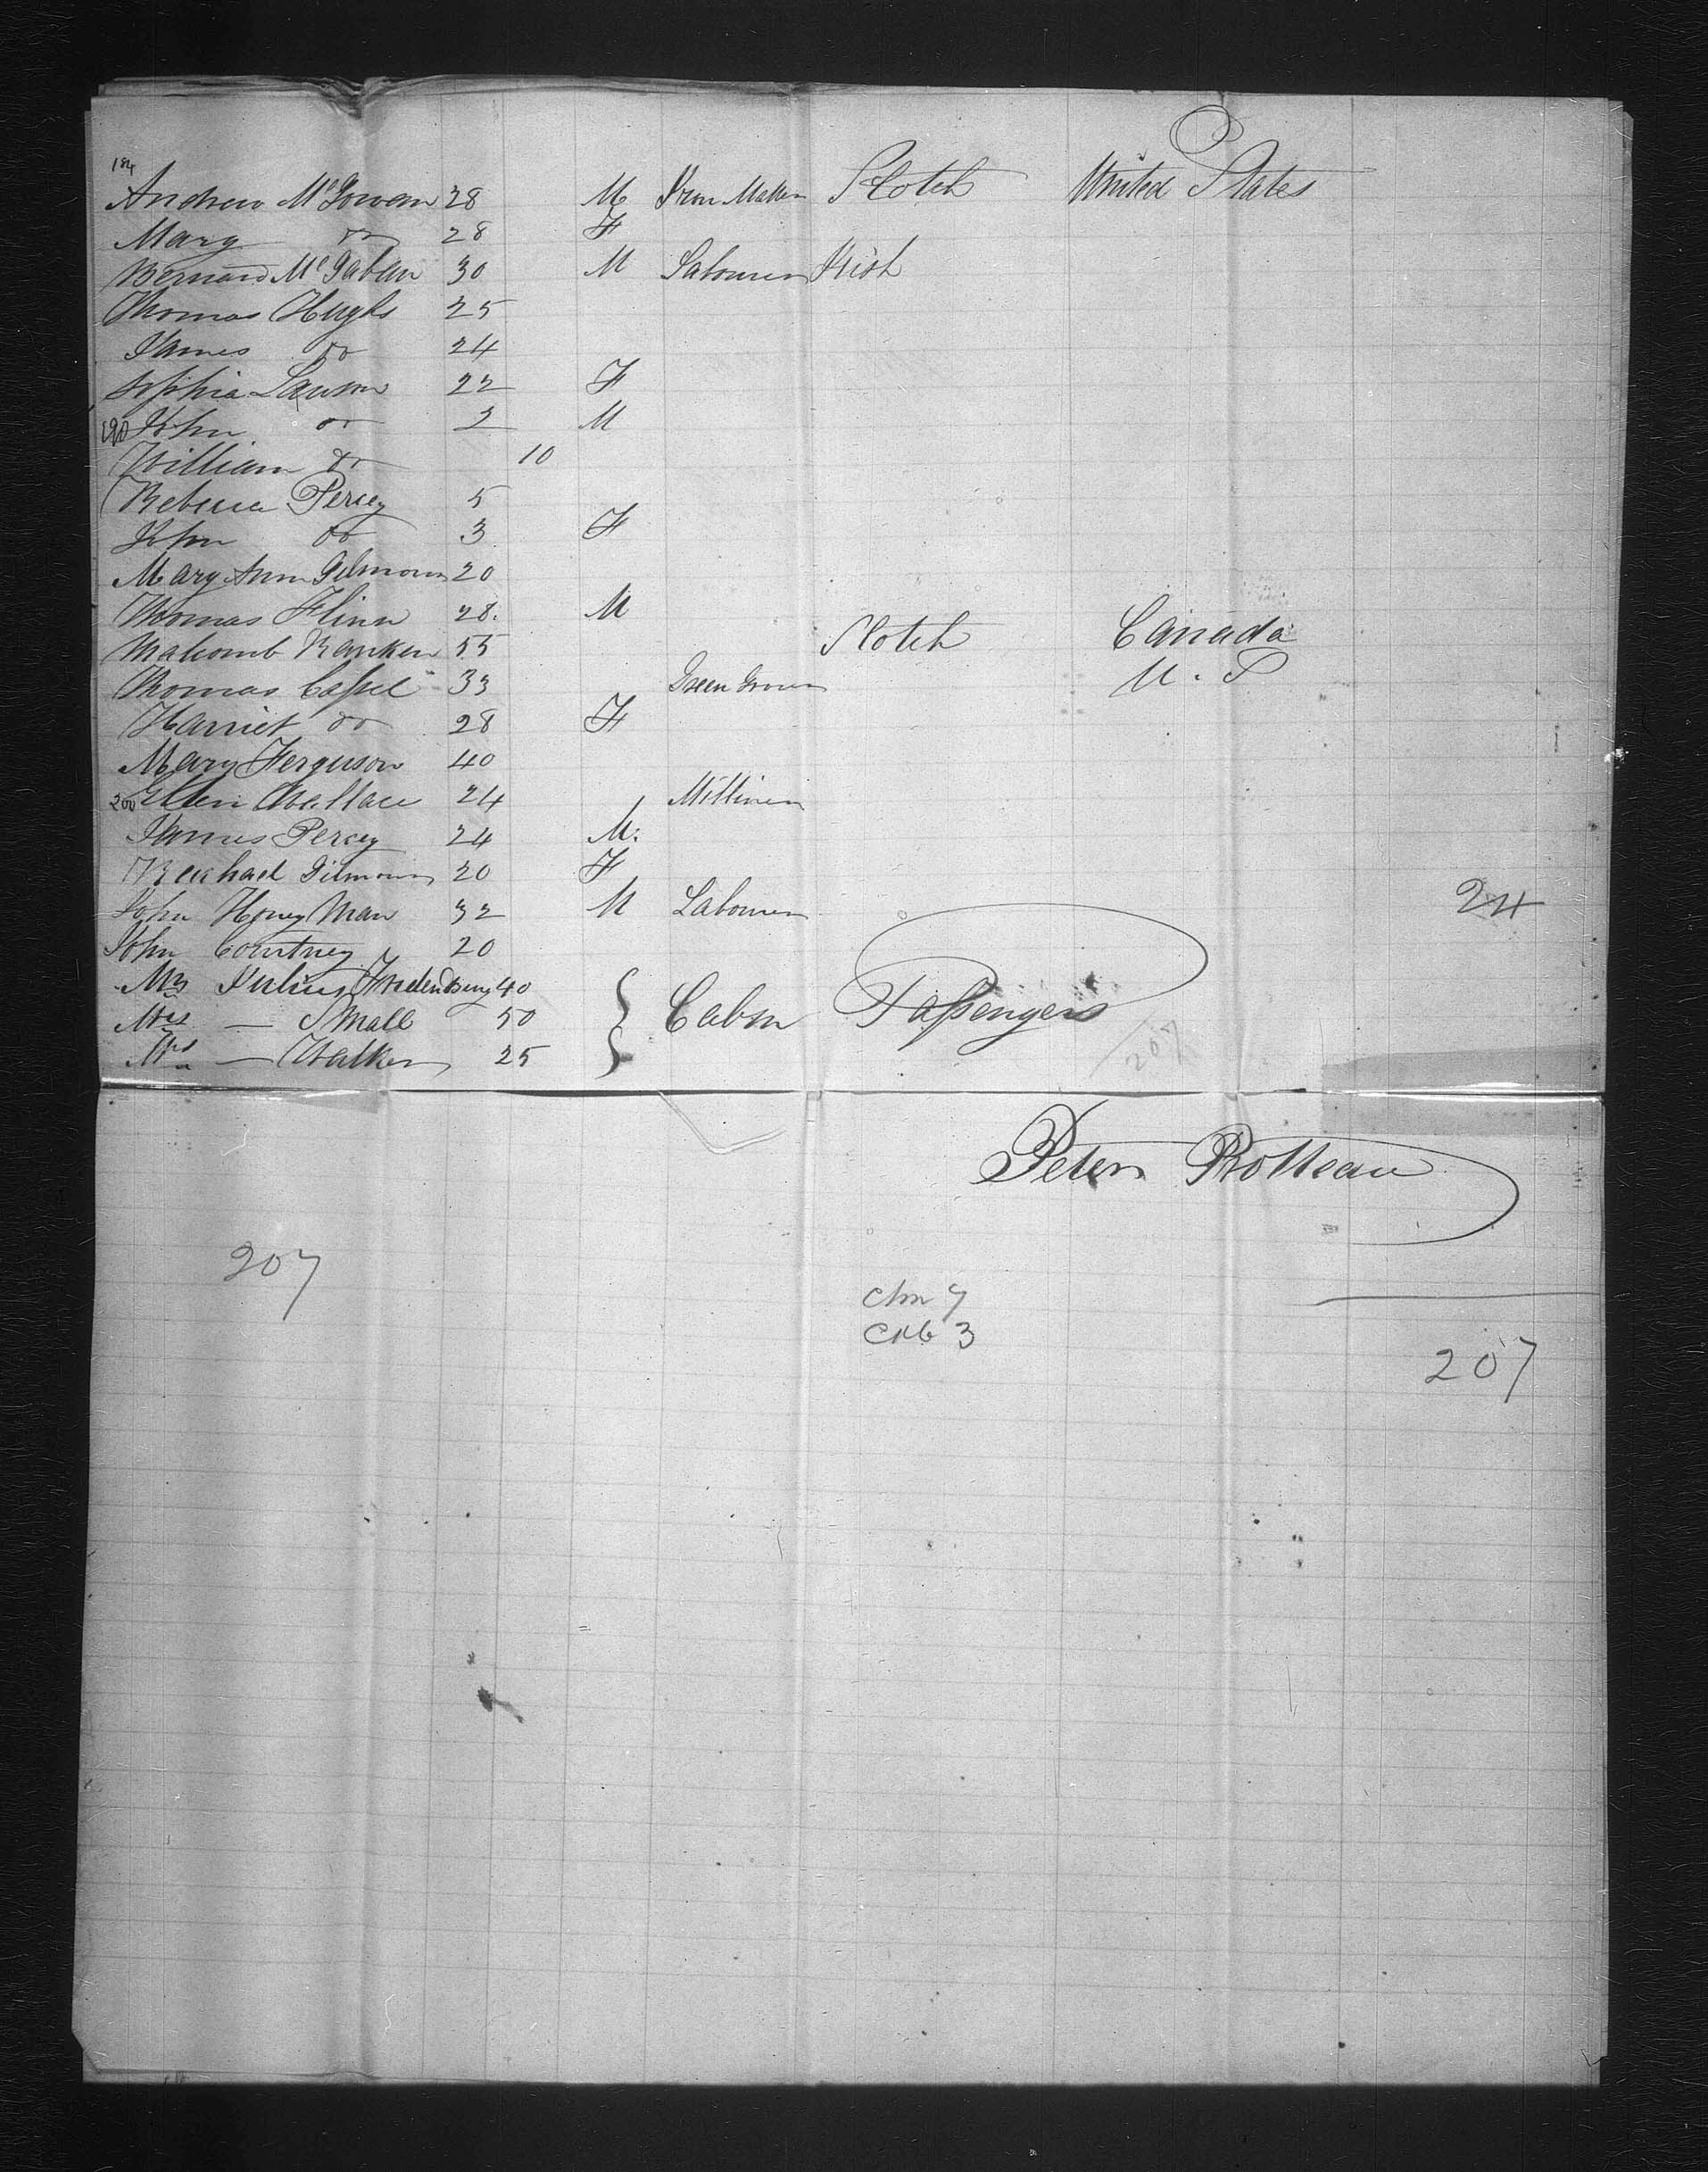 184
Andrew McGowan 28 M Iron Maker Scotch United States
Mary do 28 F
Bernard McGaban 30 M Labourer Irish
Thomas Hughs 25
James do 24
Sophia Lawson 22 F
190 John do 2 M
William do 10
Rebecca Percy 5
John do 3 F
Mary Ann Gilmour 20
Thomas Flinn 28. M
Malcomb Ranken 55 Scotch Canada
Thomas Cassel 33 Green Grocer U. S
Harriet do 28 F
Mary Ferguson 40
200 Ellen Wallace 24 Milliner
James Percy 24 M.
Reachael Gilmour 20 F
John Honey Man 32 M Labourer 24
John Courtney 20
Mr Julius 40
Mrs — Small 50 } Cabin Passengers
Mrs — Walker 25
207
Peter Rotteau
207
Chn 7
Cab 3
207